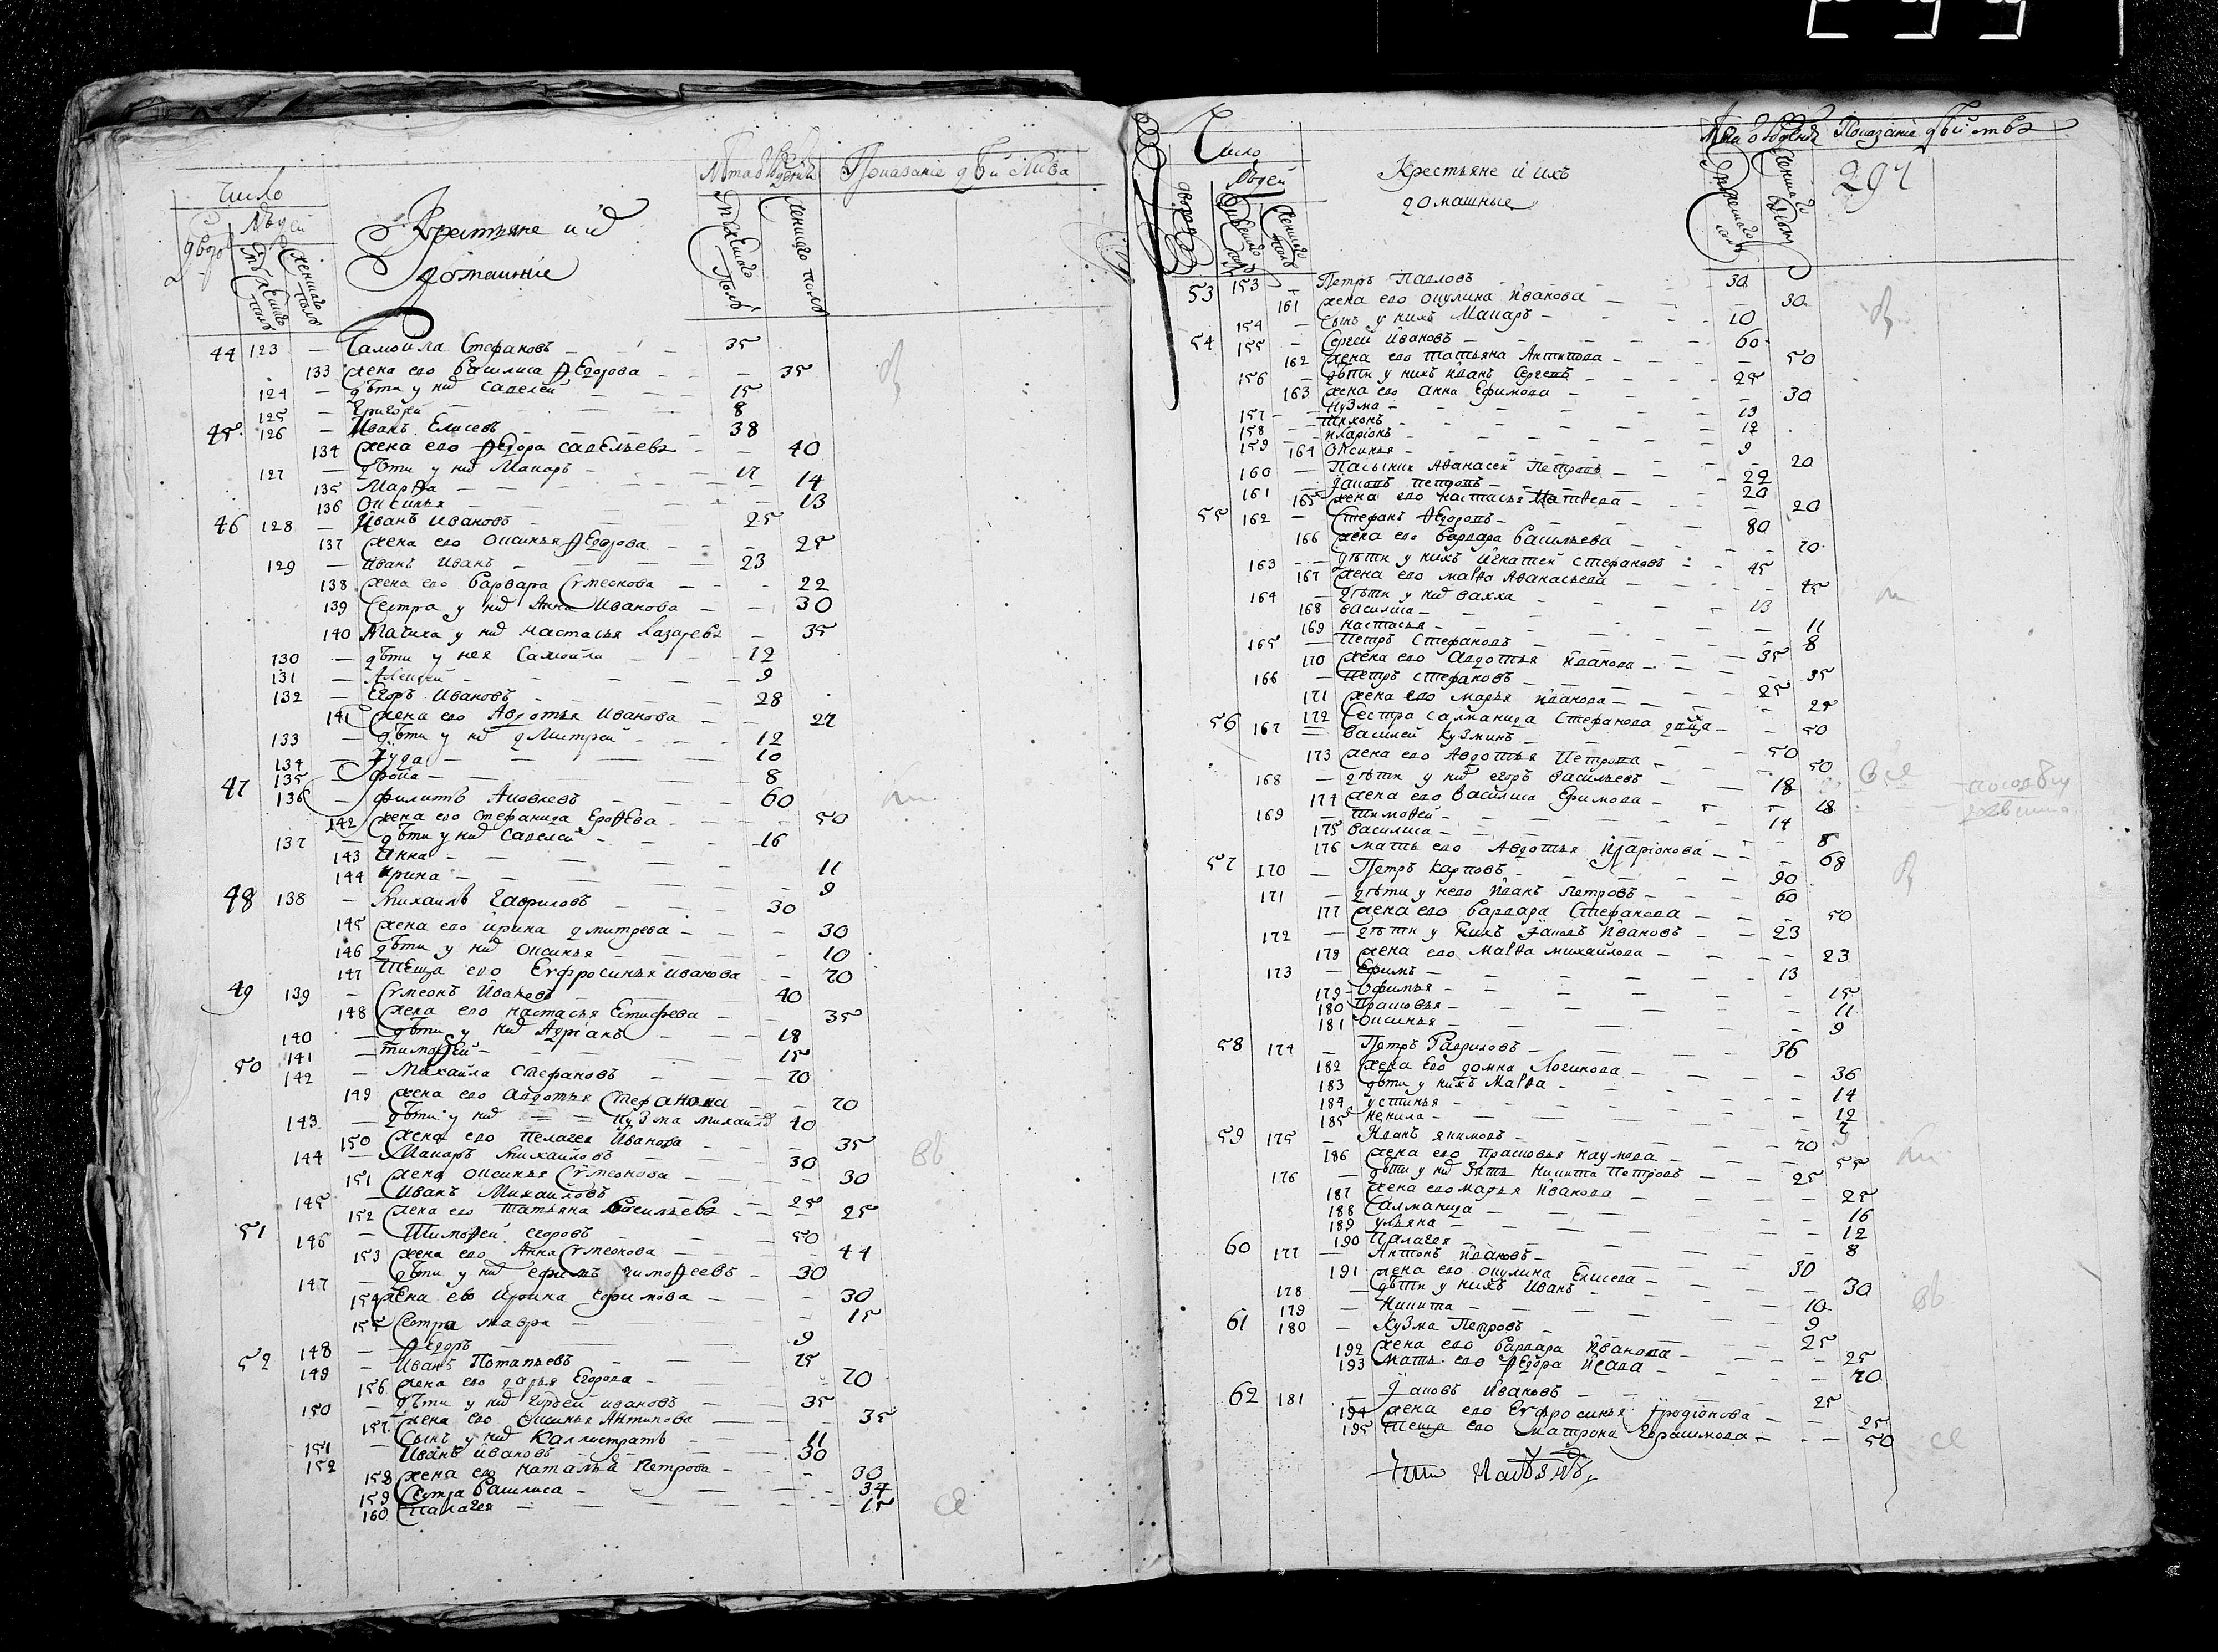 Число
Людей
Крестьяне и их
домашние
Показание действа
44 123 — Самойла Стефановъ — 35
133 жена ево Василиса Ѳедорова — 35
124 — дѣти у них Савелей — 15
125 — Григорей — 8
45 126 — Иванъ Елисеевъ — 38
134 жена ево Ѳедора Савельева — 40
127 — дѣти у них Макаръ — 17
135 Марѳа — 14
136 Оксинья — 13
46 128 — Иванъ Ивановъ — 25
137 жена ево Оксинья Ѳедорова — 25
129 — Иванъ Иванъ — 23
138 жена ево Варвара Сѵмеонова — 22
139 Сестра у них Анна Иванова — 30
140 Мачиха у них Настасья Лазарева — 35
130 — дѣти у нея Самойла — 12
131 — Алексей — 9
132 — Егоръ Ивановъ — 28
141 жена ево Авдотья Иванова — 27
133 — дѣти у них Дмитрей — 12
134 — Іуда — 10
135 — Фока — 8
47 136 — Филипъ Яковлевъ — 60
142 жена ево Стефанида Ероѳева — 50
137 — дѣти у них Савелей — 16
143 Анна — 11
144 Ирина — 9
48 138 — Михаилъ Гавриловъ — 30
145 жена ево Ирина Дмитрева — 30
146 дѣти у них Оксинья — 10
147 Теща ево Еѵфросинья Иванова — 70
49 139 — Сѵмеонъ Ивановъ — 40
148 жена ево Настасья Естифева — 35
140 — дѣти у них Адріанъ — 18
141 — Тимоѳей — 15
50 142 — Михайла Стефановъ — 70
149 жена ево Авдотья Стефанова — 70
143 — дѣти у них Кузма Михайл 40
150 жена ево Пелагея Иванова — 35
144 — Макаръ Михайловъ — 30
151 жена Оксинья Сѵмеонова — 30
145 — Иванъ Михайловъ — 25
152 жена ево Татьяна Васильева — 25
51 146 — Тимоѳей Егоровъ — 50
153 жена ево Анна Сѵмеонова — 44
147 — дѣти у них Ефимъ Тимоѳеевъ — 30
154 жена ево Ирина Ефимова — 30
155 Сестра Мавра — 15
148 — Ѳедоръ — 9
52 149 — Иванъ Потапьевъ — 75
156 жена ево Дарья Егорова — 70
150 — дѣти у них Гурьей Ивановъ — 35
157 жена ево Оксинья Антипова — 35
151 — Сынъ у них Каллистратъ — 11
152 — Иванъ Ивановъ — 30
158 жена ево Наталья Петрова — 30
159 Сестра Василиса — 34
160 Палагея — 15
Число
Людей
Крестьяне и ихъ
домашние
Показание действа
291
53 153 — Петръ Павловъ — 30
161 жена ево Окулина Иванова — 30
154 — Сынъ у нихъ Макаръ — 10
54 155 — Сергей Ивановъ — 60
162 жена ево Татьяна Антипова — 50
156 — дѣти у нихъ Иванъ Сергеевъ — 25
163 жена ево Анна Ефимова — 30
157 — Кузма — 13
158 — Тихонъ — 12
159 — Иларіонъ — 9
164 Оксинья — 20
160 — Пасынки Аѳанасей Петровъ — 22
161 — Іаковъ Петровъ — 20
165 жена ево Настасья Матѳева — 20
55 162 — Стефанъ Ѳедоровъ — 80
166 жена ево Варвара Васильева — 70
163 — дѣти у нихъ Игнатей Стефановъ — 45
167 жена ево Марѳа Аѳанасьева — 45
164 — дѣти у них Вакха — 13
168 Василиса — 11
169 Настасья — 8
165 — Петръ Стефановъ — 35
170 жена ево Авдотья Иванова — 35
166 — Петръ Стефановъ — 25
171 жена ево Марья Иванова — 25
172 Сестра Саломанида Стефанова — 50
56 167 — Василей Кузминъ — 50
173 жена ево Авдотья Петрова — 50
168 — дѣти у них Егоръ Васильевъ — 18
174 жена ево Василиса Ефимова — 18
169 — Тимоѳей — 14
175 Василиса — 8
176 Мать ево Авдотья Иларіонова — 68
57 170 — Петръ Карповъ — 90
171 — дѣти у нево Иванъ Петровъ — 60
177 жена ево Варвара Стефанова — 50
172 — дѣти у нихъ Іаковъ Ивановъ — 23
178 жена ево Марѳа Михайлова — 23
173 — Ефимъ — 13
179 Офимья — 15
180 Прасковья — 11
181 Оксинья — 9
58 174 — Петръ Гавриловъ — 36
182 жена ево Домна Логинова — 36
183 дѣти у нихъ Марѳа — 14
184 Устинья — 12
185 Ненила —
59 175 — Иванъ Якимовъ — 70
186 жена ево Прасковья Наумова — 55
176 — дѣти у них Зять Никита Петровъ — 25
187 жена ево Марья Иванова — 25
188 Салманида — 16
189 Ульяна — 12
190 Палагея — 8
60 177 — Антонъ Ивановъ — 30
191 жена ево Окулина Елисева — 30
178 — дѣти у нихъ Иванъ — 10
179 — Никита — 9
61 180 — Кузма Петровъ — 25
192 жена ево Варвара Иванова — 25
193 Мать ево Ѳедора Исаева — 70
62 181 — Іаковъ Ивановъ — 25
194 жена ево Еѵфросинья Иродіонова — 25
195 Теща ево Матрона Герасимова — 50